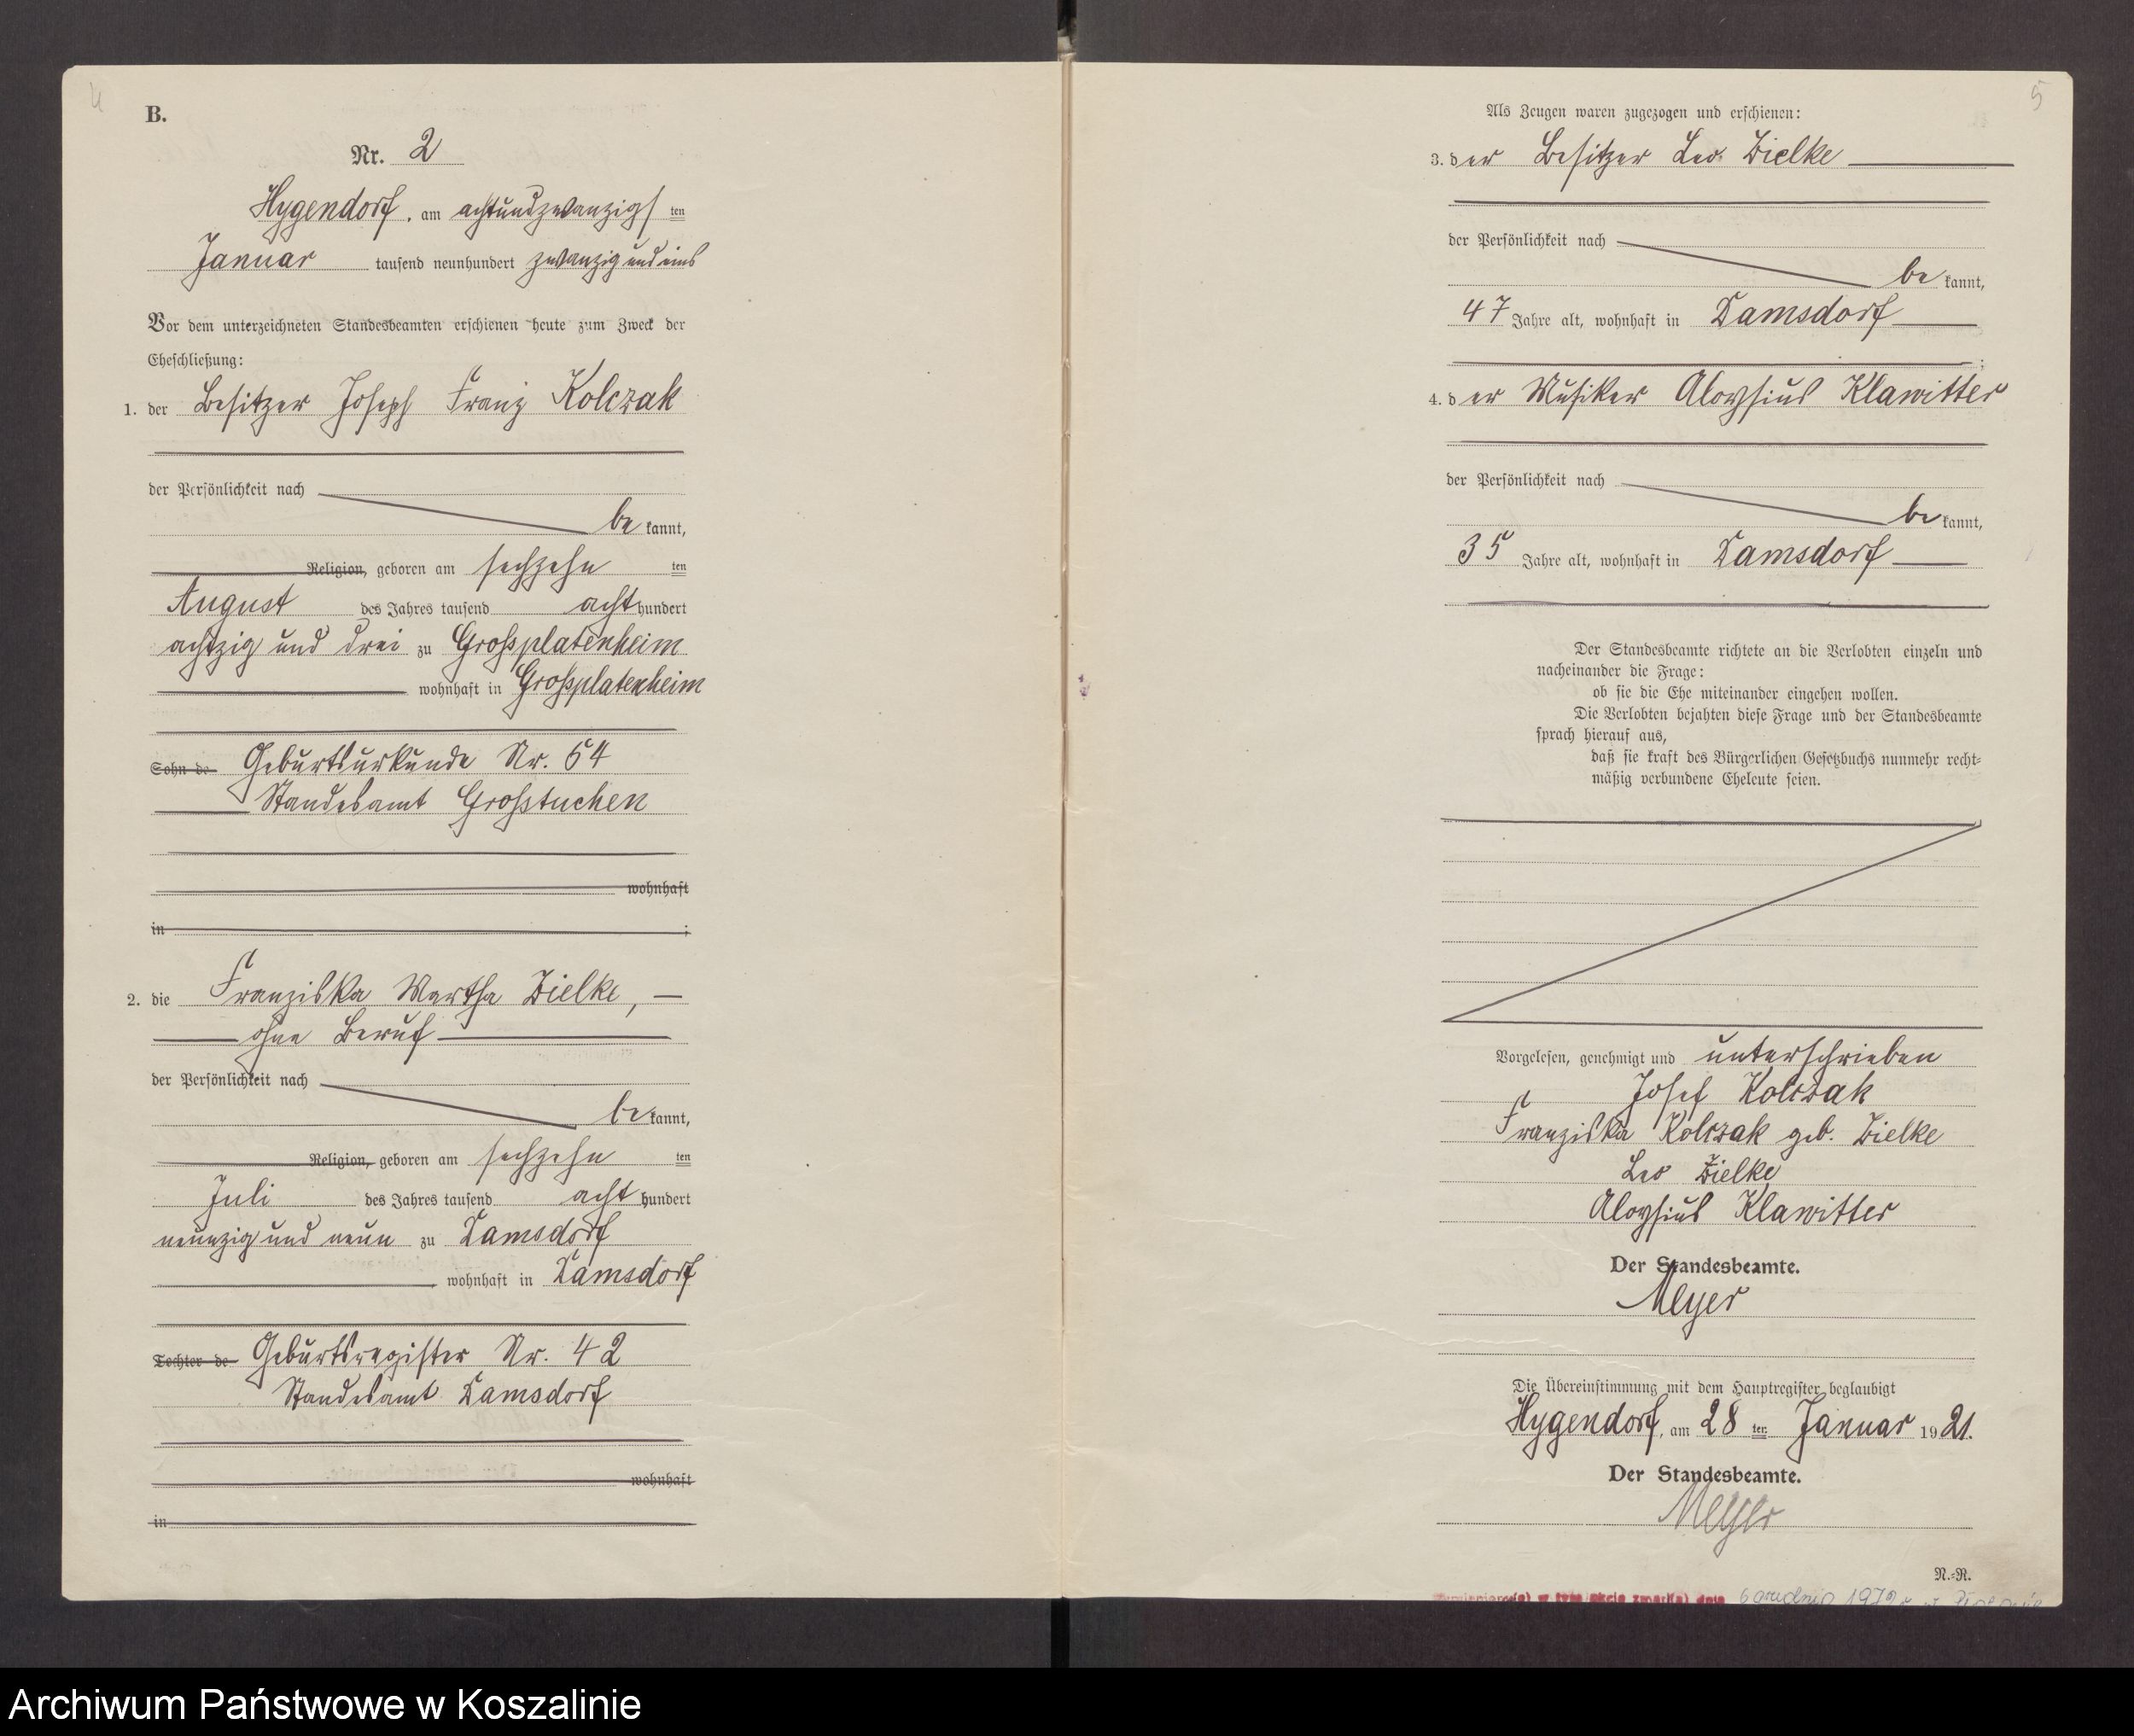 4
B.
Nr. 2
Hygendorf, am achtundzwanzigsten
Januar tausend neunhundert zwanzig und eins
Vor dem unterzeichneten Standesbeamten erschienen heute zum Zweck der
Eheschließung:
1. der Besitzer Joseph Franz Kolczak
der Persönlichkeit nach
be kannt,
Religion, geboren am sechzehn ten
August des Jahres tausend acht hundert
achtzig und drei zu Grossplatenheim
wohnhaft in Grossplatenheim
Sohn de Geburtsurkunde Nr. 54
Standesamt Grosstuchen
wohnhaft
in ;
2. die Franziska Martha Zielke,
ohne Beruf
der Persönlichkeit nach
be kannt,
Religion, geboren am sechzehn ten
Juli des Jahres tausend acht hundert
neunzig und neun zu Damsdorf
wohnhaft in Damsdorf
Tochter de Geburtsregister Nr. 42
Standesamt Damsdorf
wohnhaft
in
5
Als Zeugen waren zugezogen und erschienen:
3. der Besitzer Leo Zielke
der Persönlichkeit nach
be kannt,
47 Jahre alt, wohnhaft in Damsdorf
;
4. der Musiker Aloysius Klawitter
der Persönlichkeit nach
be kannt,
35 Jahre alt, wohnhaft in Damsdorf
Der Standesbeamte richtete an die Verlobten einzeln und
nacheinander die Frage:
ob sie die Ehe miteinander eingehen wollen.
Die Verlobten bejahten diese Frage und der Standesbeamte
sprach hierauf aus,
daß sie kraft des Bürgerlichen Gesetzbuchs nunmehr recht-
mäßig verbundene Eheleute seien.
Vorgelesen, genehmigt und unterschrieben
Josef Kolczak
Franziska Kolczak geb. Zielke
Leo Zielke
Aloysius Klawitter
Der Standesbeamte.
Meyer
Die Übereinstimmung mit dem Hauptregister beglaubigt
Hygendorf, am 28 ten Januar 1921.
Der Standesbeamte.
Meyer
N.-R.
w tym akcie zmarł(a) dnia 6 grudnia
Archiwum Państwowe w Koszalinie